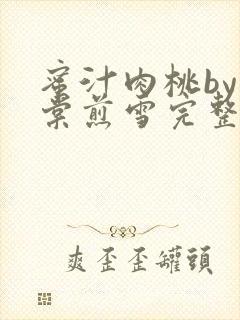 蜜汁肉桃by
棠煎雪完整
爽歪歪罐頭